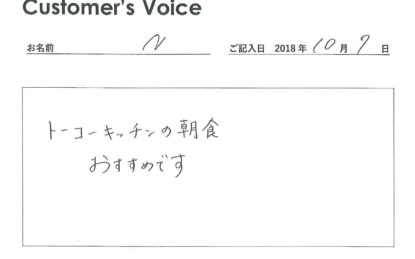 Customer's Voice
お名前 N ご記入日 2018年 10月 7日
トーコーキッチンの朝食
おすすめです